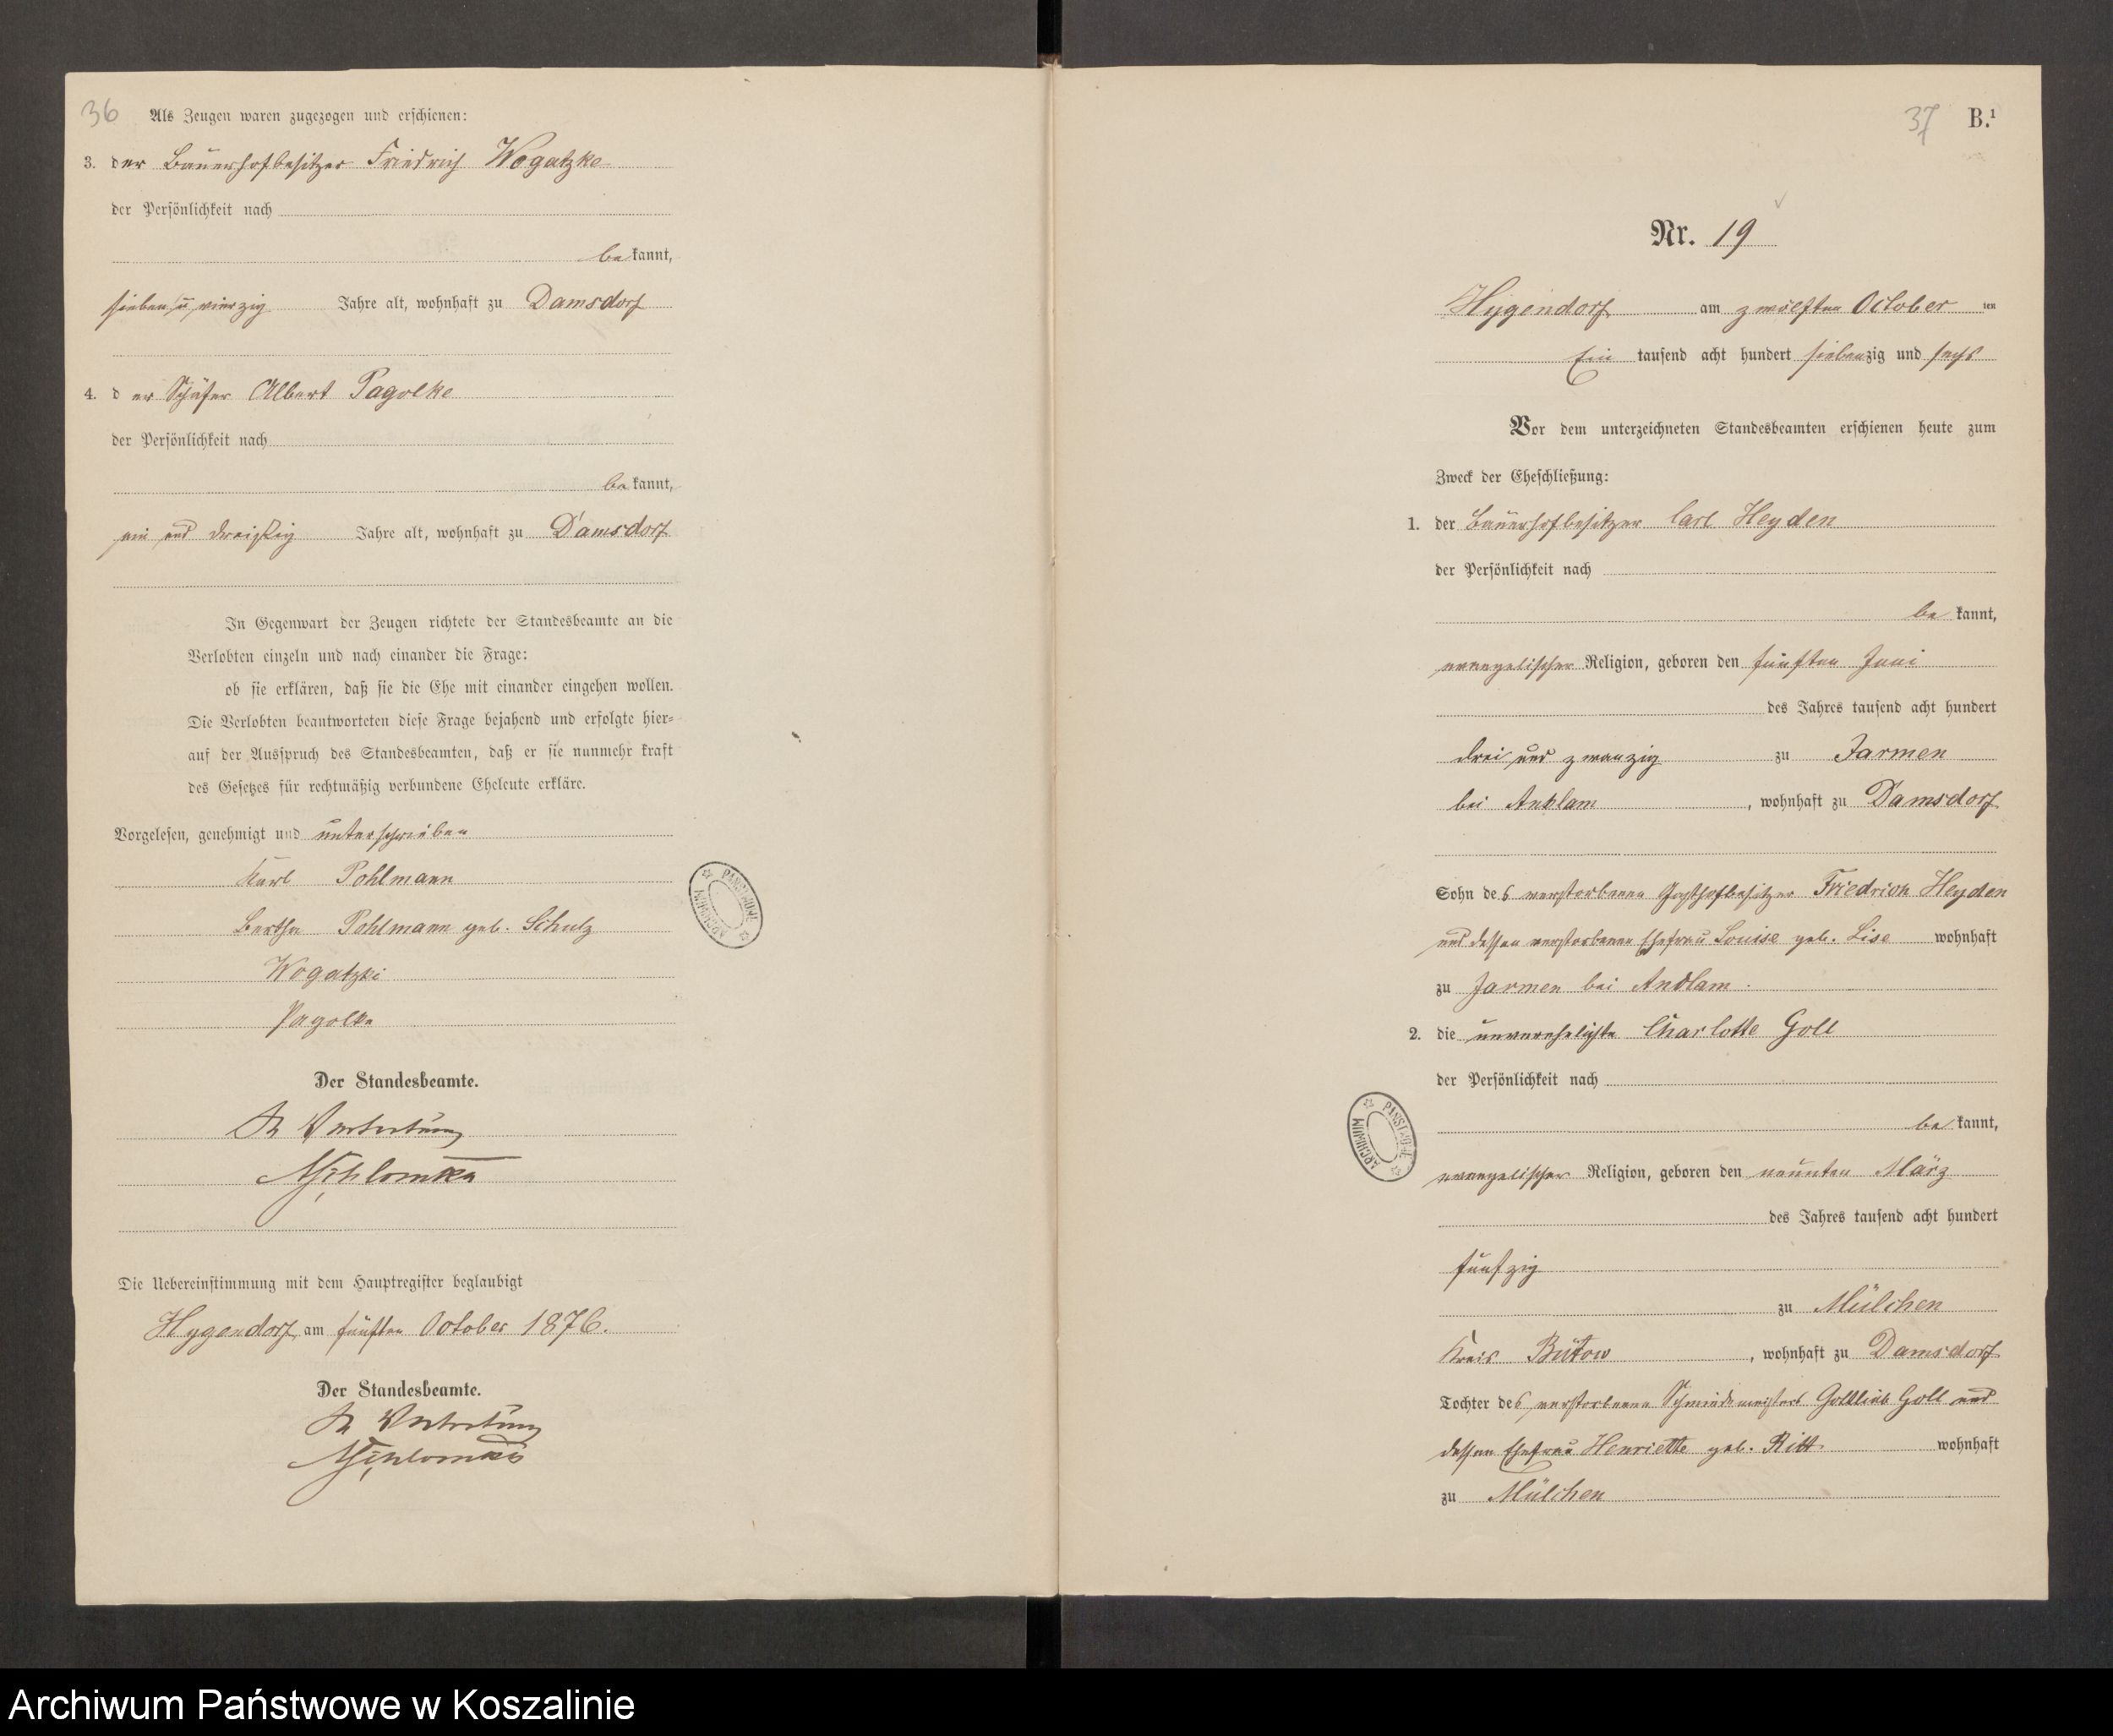 36
Als Zeugen waren zugezogen und erschienen:
3. der Bauerhofbesitzer Friedrich Wogatzke
der Persönlichkeit nach
bekannt,
sieben u vierzig Jahre alt, wohnhaft zu Damsdorf
4. der Schäfer Albert Pagolke
der Persönlichkeit nach
bekannt,
ein und dreißig Jahre alt, wohnhaft zu Damsdorf
In Gegenwart der Zeugen richtete der Standesbeamte an die
Verlobten einzeln und nach einander die Frage:
ob sie erklären, daß sie die Ehe mit einander eingehen wollen.
Die Verlobten beantworteten diese Frage bejahend und erfolgte hier=
auf der Ausspruch des Standesbeamten, daß er sie nunmehr kraft
des Gesetzes für rechtmäßig verbundene Eheleute erkläre.
Vorgelesen, genehmigt und unterschrieben
Karl Pohlmann
Bertha Pohlmann geb. Schulz
Wogatzki
Pagolke
Der Standesbeamte.
In Vertretung
Die Uebereinstimmung mit dem Hauptregister beglaubigt
Hygendorf am fünften October 1876.
Der Standesbeamte.
In Vertretung
PAŃSTWOWE ARCHIWUM
37 B.¹
Nr. 19
Hygendorf am zwölften October ten
Ein tausend acht hundert siebenzig und sechs
Vor dem unterzeichneten Standesbeamten erschienen heute zum
Zweck der Eheschließung:
1. der Bauerhofbesitzer Carl Heyden
der Persönlichkeit nach
bekannt,
evangelischer Religion, geboren den fünften Juni
des Jahres tausend acht hundert
drei und zwanzig zu Jarmen
bei Anklam, wohnhaft zu Damsdorf
Sohn des verstorbenen Gasthofbesitzer Friedrich Heyden
und dessen verstorbenen Ehefrau Louise geb. Lise wohnhaft
zu Jarmen bei Anklam.
2. die unverehelichte Charlotte Goll
der Persönlichkeit nach
bekannt,
evangelischer Religion, geboren den neunten März
des Jahres tausend acht hundert
fünfzig
zu Mülchen
Kreis Bütow, wohnhaft zu Damsdorf
Tochter des verstorbenen Schmiedemeisters Gottlieb Goll und
dessen Ehefrau Henriette geb. Ritt wohnhaft
zu Mülchen
PAŃSTWOWE ARCHIWUM
Archiwum Państwowe w Koszalinie